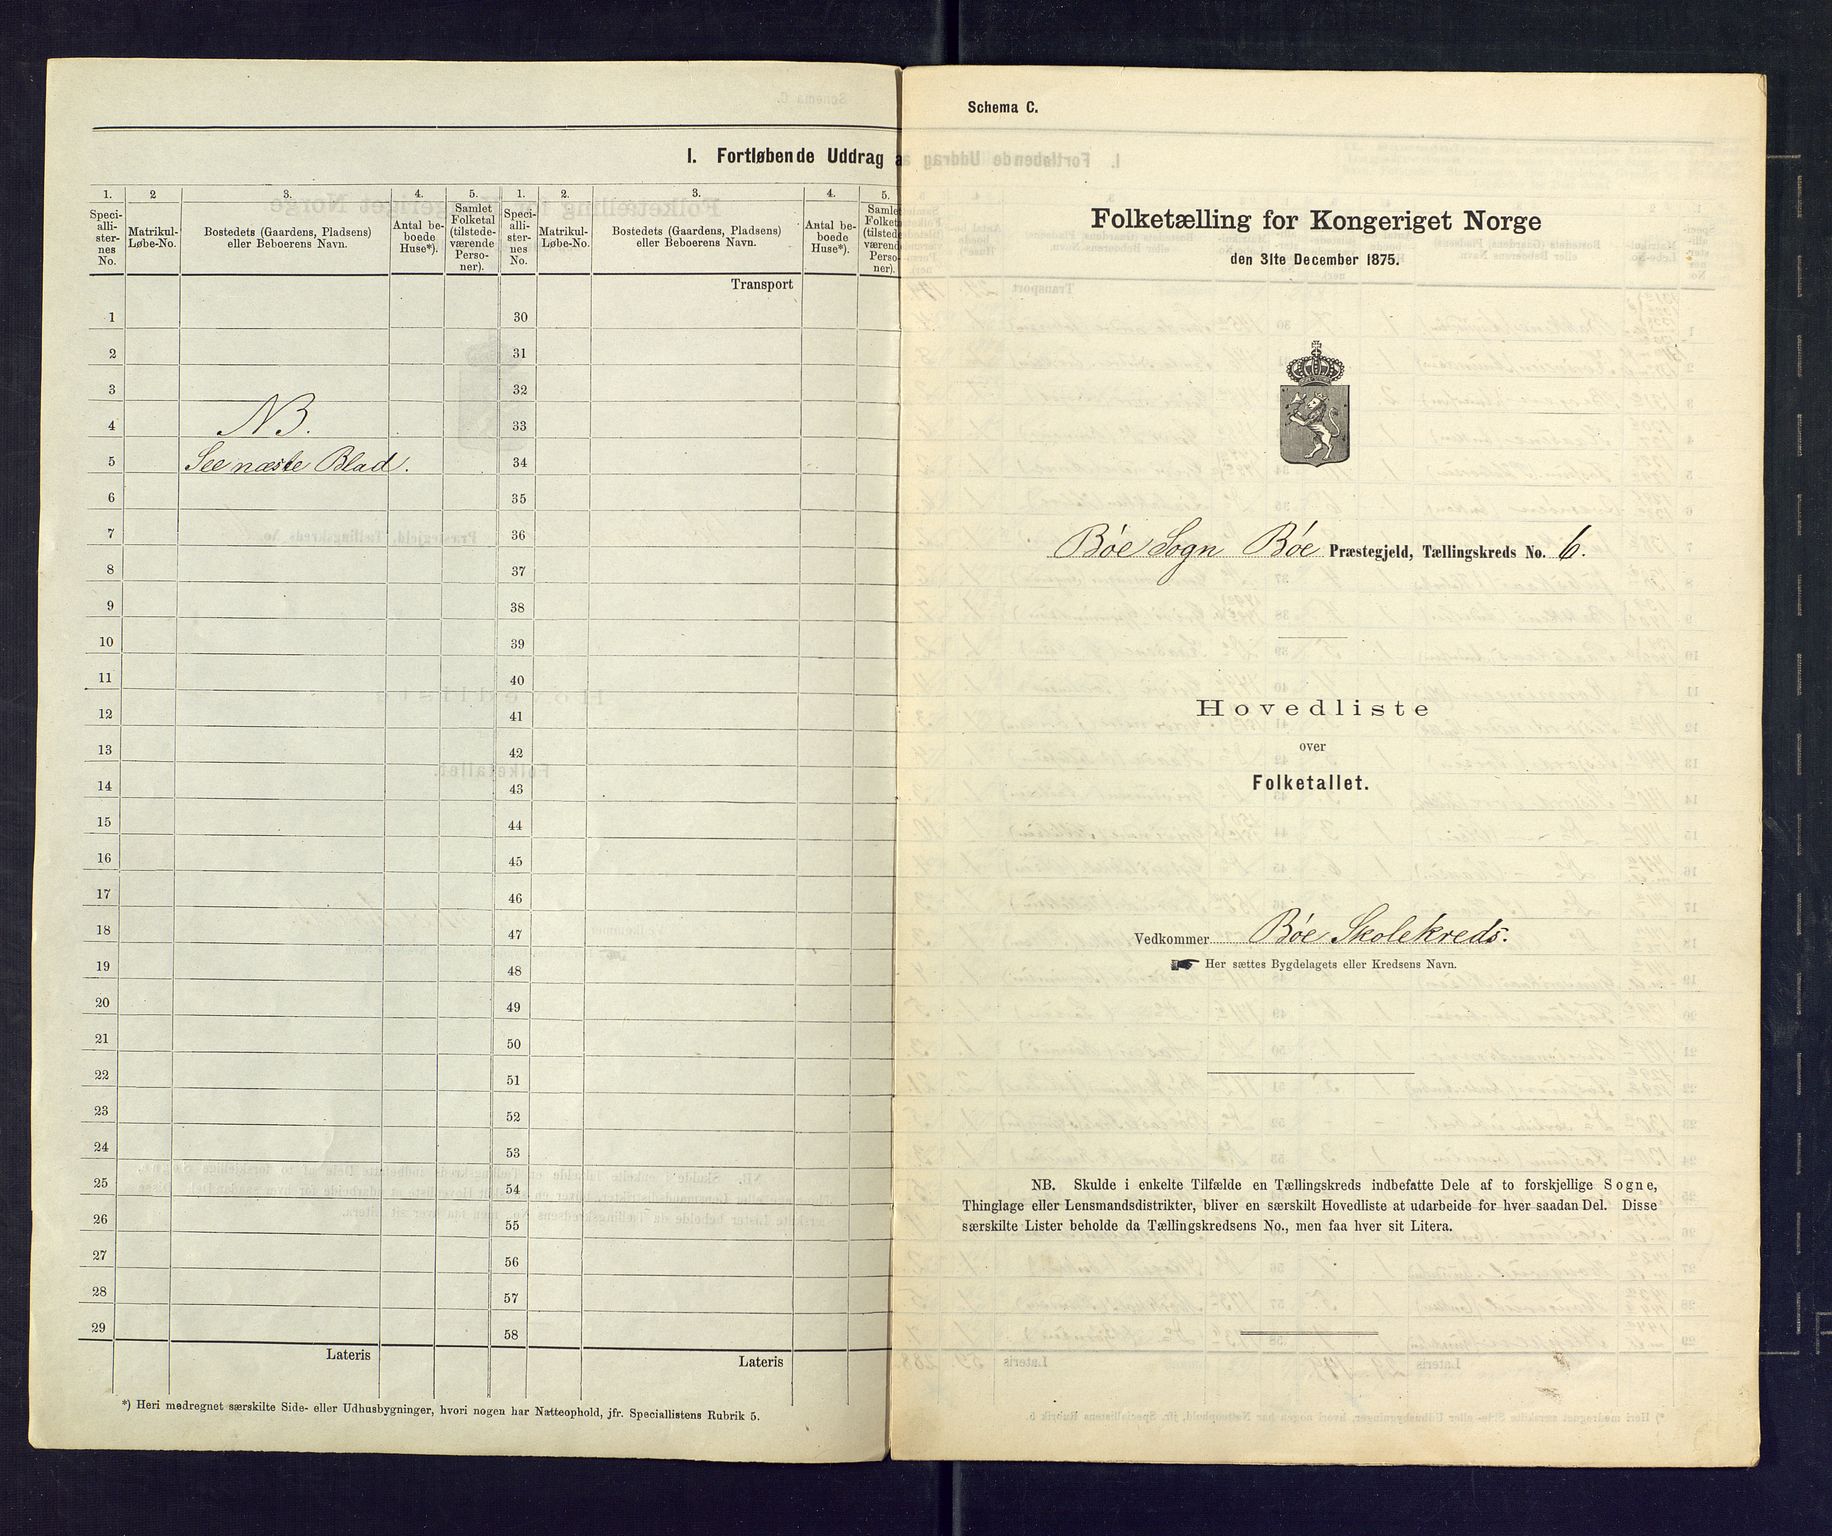 I. Fortløbende Uddrag a
1. 2 3. 4. 5. 1. 2. 3. 4. 5.
Speci-alli-ster-nes No. Matrikul-Løbe-No. Bostedets (Gaardens, Pladsens) eller Beboerens Navn. Antal be-boede Huse*). Samlet Folketal (tilstede-værende Perso-ner). Speci-alli-ster-nes No. Matrikul-Løbe-No. Bostedets (Gaardens, Pladsens) eller Beboerens Navn. Antal be-boede Huse*). Samle Folket (tilsted værend Perso-ner).
Transport
1 30
2 31
3 32
4 NB. 33
5 See næste Blad. 34
6 35
7 36
8 37
9 38
10 39
11 40
12 41
13 42
14 43
15 44
16 45
17 46
18 47
19 48
20 49
21 50
22 51
23 52
24 53
25 54
26 55
27 56
28 57
29 58
Lateris Lateris
*) Heri medregnet særskilte Side- eller Udhusbygninger, hvori nogen har Natteophold, jfr. Speciallistens Rubrik 5.
Schema C.
Folketælling for Kongeriget Norge
den 31te December 1875.
Bøe Sogn Bøe Præstegjeld, Tællingskreds No. 6.
Hovedliste
over
Folketallet.
Vedkommer Bøe Skolekreds.
Her sættes Bygdelagets eller Kredsens Navn.
NB. Skulde i enkelte Tilfælde en Tællingskreds indbefatte Dele af to forskjellige Sogne,
Thinglage eller Lensmandsdistrikter, bliver en særskilt Hovedliste at udarbeide for hver saadan Del. Disse
særskilte Lister beholde da Tællingskredsens No., men faa hver sit Litera.